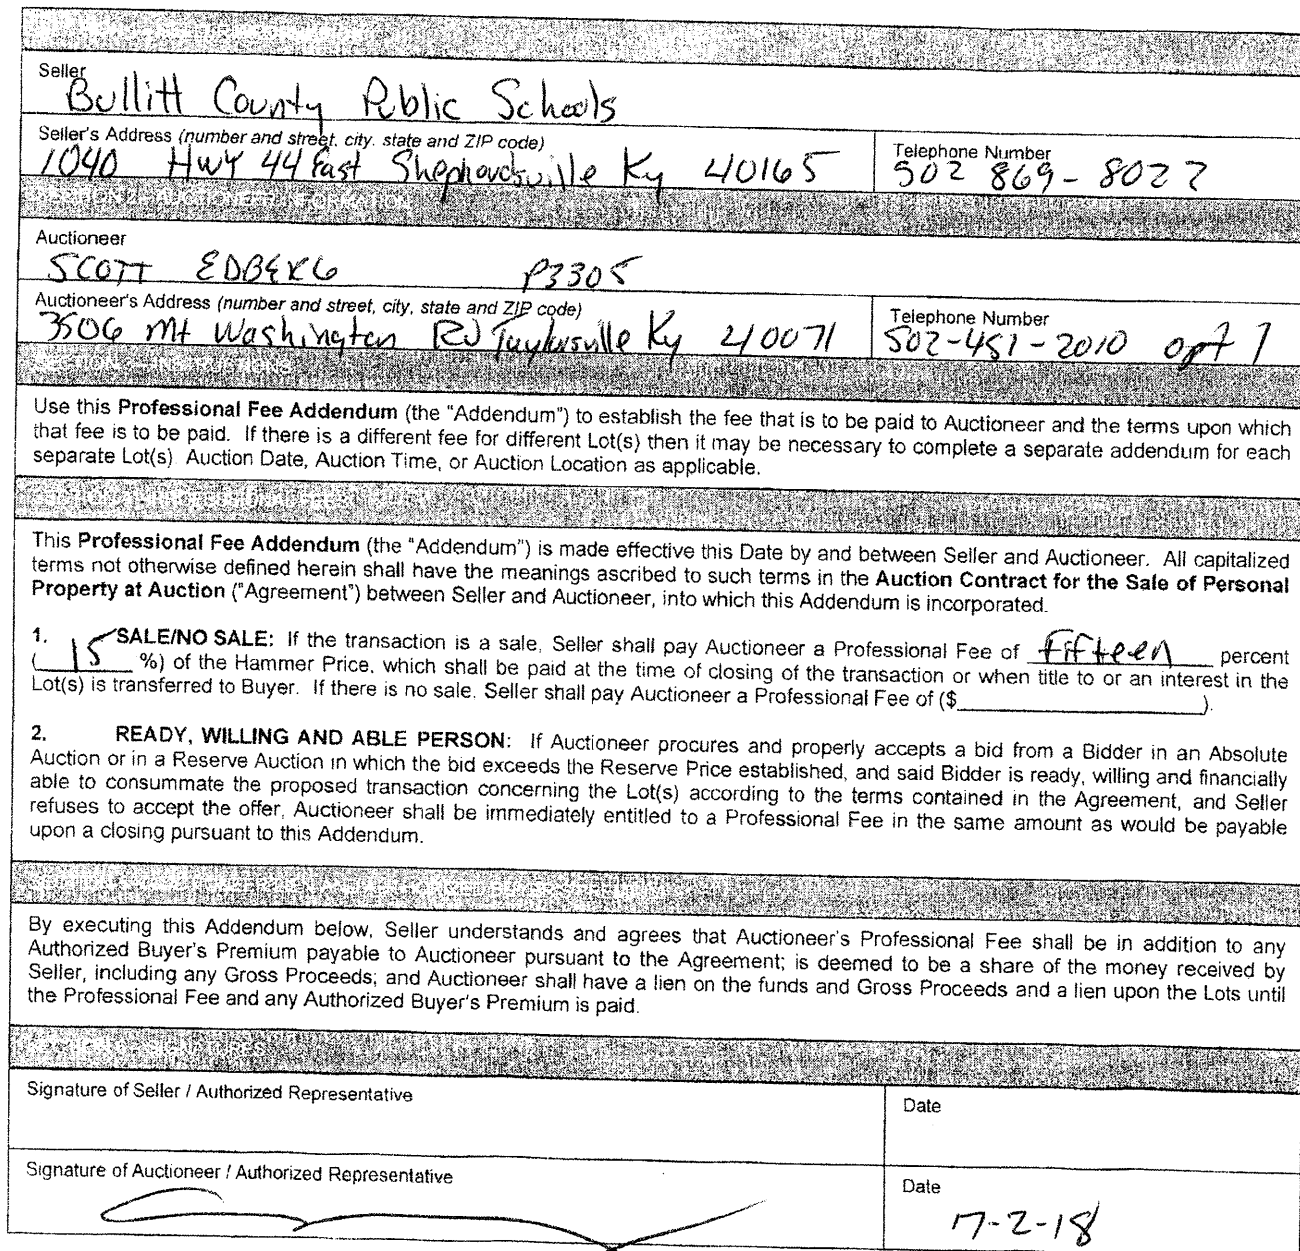 Seller
Bullitt County Public Schools
Seller's Address (number and street, city, state and ZIP code)
1040 Hwy 44 East Shepherdsville Ky 40165
Telephone Number
502 869-8022
SECTION 2: AUCTIONEER INFORMATION
Auctioneer
SCOTT EDBERG P3305
Auctioneer's Address (number and street, city, state and ZIP code)
3506 Mt Washington Rd Taylorsville Ky 40071
Telephone Number
502-451-2010 opt 1
Use this Professional Fee Addendum (the "Addendum") to establish the fee that is to be paid to Auctioneer and the terms upon which
that fee is to be paid. If there is a different fee for different Lot(s) then it may be necessary to complete a separate addendum for each
separate Lot(s) Auction Date, Auction Time, or Auction Location as applicable.
This Professional Fee Addendum (the "Addendum") is made effective this Date by and between Seller and Auctioneer. All capitalized
terms not otherwise defined herein shall have the meanings ascribed to such terms in the Auction Contract for the Sale of Personal
Property at Auction ("Agreement") between Seller and Auctioneer, into which this Addendum is incorporated.
1. SALE/NO SALE: If the transaction is a sale, Seller shall pay Auctioneer a Professional Fee of fifteen percent
(15 %) of the Hammer Price, which shall be paid at the time of closing of the transaction or when title to or an interest in the
Lot(s) is transferred to Buyer. If there is no sale, Seller shall pay Auctioneer a Professional Fee of ($____________________).
2. READY, WILLING AND ABLE PERSON: If Auctioneer procures and properly accepts a bid from a Bidder in an Absolute
Auction or in a Reserve Auction in which the bid exceeds the Reserve Price established, and said Bidder is ready, willing and financially
able to consummate the proposed transaction concerning the Lot(s) according to the terms contained in the Agreement, and Seller
refuses to accept the offer, Auctioneer shall be immediately entitled to a Professional Fee in the same amount as would be payable
upon a closing pursuant to this Addendum.
By executing this Addendum below, Seller understands and agrees that Auctioneer's Professional Fee shall be in addition to any
Authorized Buyer's Premium payable to Auctioneer pursuant to the Agreement; is deemed to be a share of the money received by
Seller, including any Gross Proceeds; and Auctioneer shall have a lien on the funds and Gross Proceeds and a lien upon the Lots until
the Professional Fee and any Authorized Buyer's Premium is paid.
Signature of Seller / Authorized Representative
Date
Signature of Auctioneer / Authorized Representative
Date
7-2-18